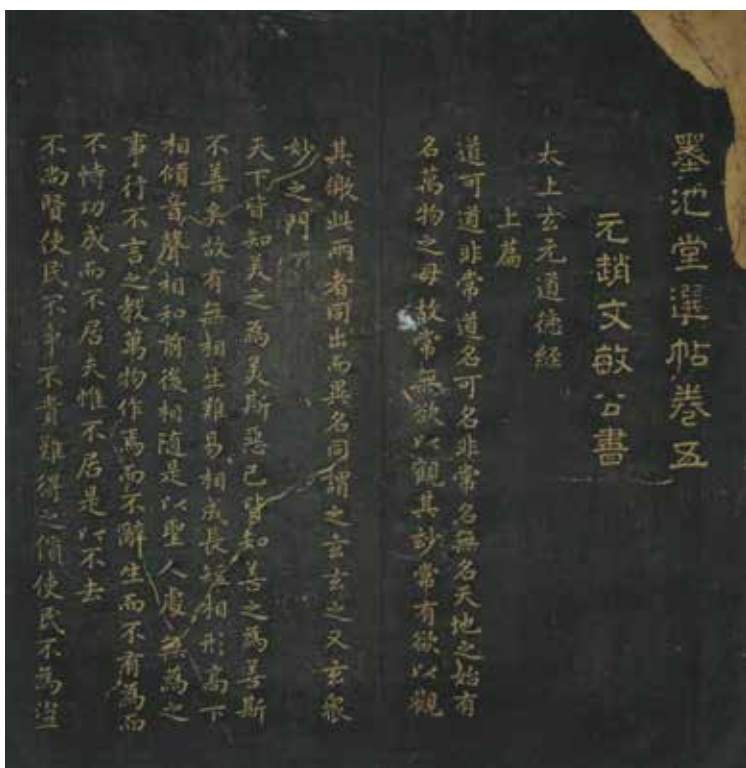 墨池堂選帖卷五
元趙文敏公書
太上玄元道德経
上篇
道可道非常道名可名非常名無名天地之始有
名萬物之母故常無欲以觀其妙常有欲以觀
其徼此兩者同出而異名同謂之玄玄之又玄衆
妙之門
天下皆知美之為美斯惡已皆知善之為善斯
不善矣故有無相生難易相成長短相形高下
相傾音聲相和前後相隨是以聖人處無為之
事行不言之教萬物作焉而不辭生而不有為而
不恃功成而不居夫惟不居是以不去
不尚賢使民不爭不貴難得之貨使民不為盗